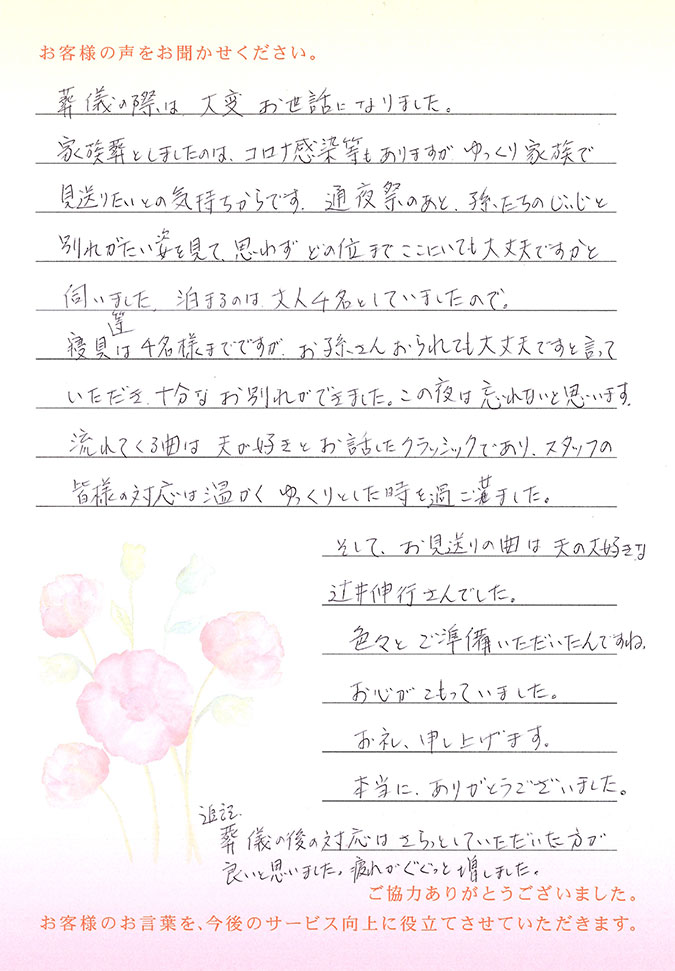 お客様の声をお聞かせください。
葬儀の際は、大変お世話になりました。
家族葬としましたのは、コロナ感染等もありますがゆっくり家族で
見送りたいとの気持ちからです。通夜祭のあと、孫たちのじぃじと
別れがたい姿を見て、思わずどの位までここにいても大丈夫ですかと
伺いました。泊まるのは、大人4名としていましたので。
寝具等は4名様までですが、お孫さんおられても大丈夫ですと言って
いただき、十分なお別れができました。この夜は忘れないと思います。
流れてくる曲は夫が好きとお話したクラッシックであり、スタッフの
皆様の対応は温かくゆっくりとした時を過ごせました。
そして、お見送りの曲は夫の大好きな
辻井伸行さんでした。
色々とご準備いただいたんですね。
お心がこもっていました。
お礼、申し上げます。
本当に、ありがとうございました。
追記.
葬儀の後の対応はさらっとしていただいた方が
良いと思いました。疲れがぐぐっと増しました。
ご協力ありがとうございました。
お客様のお言葉を、今後のサービス向上に役立てさせていただきます。